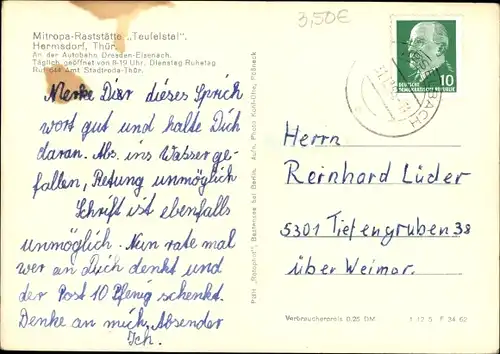 3,50€
Mitropa-Raststätte „Teufelstal",
Hermsdorf, Thür.
An der Autobahn Dresden-Eisenach.
Täglich geöffnet von 8-19 Uhr. Dienstag Ruhetag
Ruf 044 Amt Stadtroda-Thür.
Merke Dir dieses Sprich
wort gut und halte Dich
daran. Abs. ins Wasser ge-
fallen, Retung unmöglich
Schrift ist ebenfalls
unmöglich. Nun rate mal
wer an Dich denkt und
der Post 10 Pfenig schenkt.
Denke an mich, Absender
Ich.
10
DEUTSCHE
DEMOKRATISCHE REPUBLIK
BACH
Herrn
Reinhard Lüder
5301 Tiefengruben 38
über Weimar.
Verbraucherpreis 0,25 DM
F 34 62